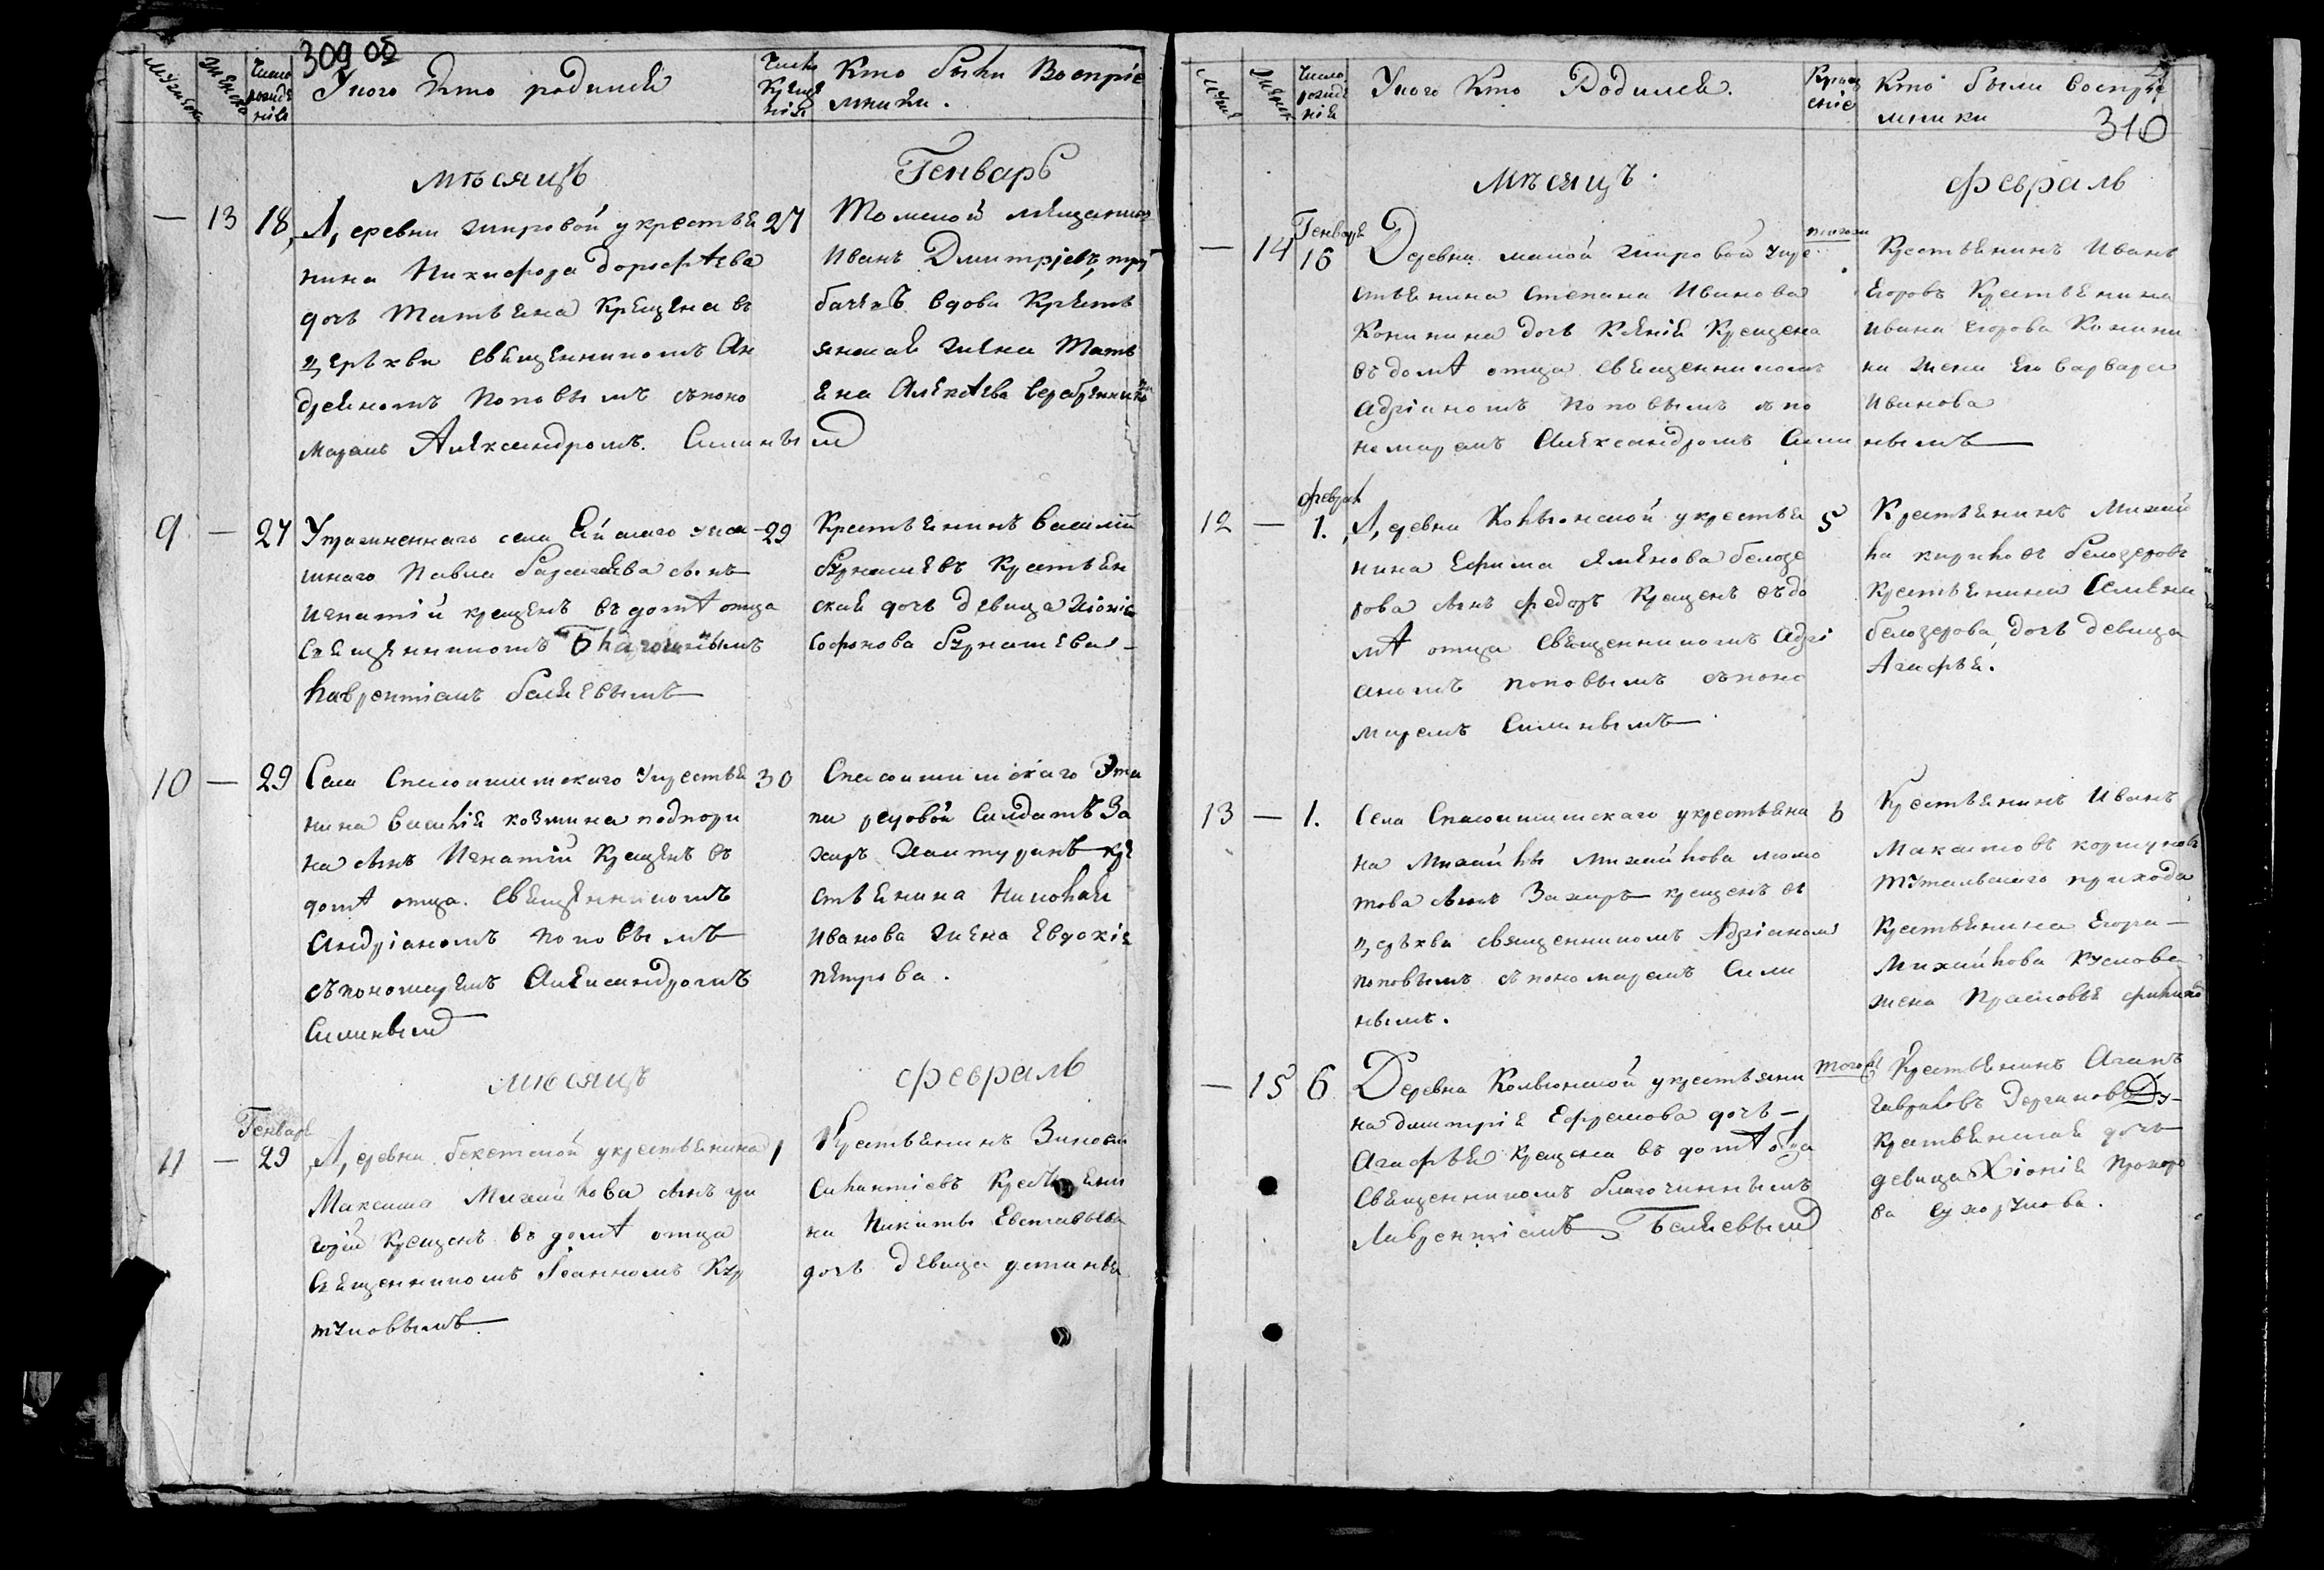 309 об
Мужеска
Женска
Число рожденія
У кого кто родился
Число Крещенія
Кто были Воспріе
мники.
мѣсяцъ
Генварь
— 13 18
Деревни жировой у крестья
нина Никифора дорофѣева
дочь Татьяна Крещена въ
церькви Священникомъ Ан
дреяномъ Поповымъ съ поно
маремъ Александромъ. Силинымъ
27
Томской мѣщанинъ
Иванъ Дмитріевъ, тру
бачевъ вдова Кресть
янская жена Тать
яна Алексѣева серебренни
9 — 27
Утрачиненнаго села
шнаго Павла сынъ
игнатій крещенъ въ домѣ отца
Священникомъ Благочиннымъ
Лаврентіемъ Беляевымъ
29
Крестьянинъ василій
Бурнашевъ Крестьян
ская дочь девица Хіонія
Софонова Бурнашева
10 — 29
Села Спасояшинскаго у крестья
нина василія козмина подпори
на сынъ Игнатій Крещенъ въ
домѣ отца. Священникомъ
Андріаномъ поповымъ
съ пономаремъ Александромъ
Силинымъ
30
Спасояшинскаго Эта
па рядовой Силдатъ За
харъ Хаитуринъ кре
стьянина Николая
Иванова жена Евдокія
петрова.
мѣсяцъ
февраль
Генваря
11 — 29
Деревни бекетской у крестьянина
Максима Михайлова сынъ гри
горій крещенъ въ домѣ отца
Священникомъ Іоанномъ Кур
туковымъ
1
Крестьянинъ Зиновій
Силантіевъ Крестьяни
на Никиты Евстафьева
дочь девица устинья
310
Муже
Женск
Число рожденія
У кого кто Родился.
Крещеніе
Кто были воспріе
мники
Мѣсяцъ.
февраль
Генваря
— 14 16
Деревни малой жировой у кре
стьянина Степана Иванова
Конинина дочь Ксенія Крещена
въ домѣ отца священникомъ
Адріаномъ поповымъ съ по
номаремъ Александромъ Силинымъ
Крестьянинъ Иванъ
Егоровъ Крестьянина
ивана егорова Конини
на жена его варвара
Иванова
февраля
12 — 1.
Деревни Кольонской у крестья
нина Ефима семенова белозе
рова сынъ федоръ Крещенъ въ до
мѣ отца Священникомъ Адрі
аномъ поповымъ съ поно
маремъ Силинымъ
5
Крестьянинъ Михай
ла кириловъ белозеровъ
крестьянина Семена
белозерова дочь девица
Агафья.
13 — 1.
Села Спасояшинскаго у крестьяни
на Михайлы Михайлова
сынъ Захаръ крещенъ въ
церькви священникомъ Адріаномъ
поповымъ съ пономаремъ Сили
нымъ.
6
Крестьянинъ Иванъ
Максимовъ коршуновъ
тутальскаго прихода
Крестьянина Егора
Михайлова Куслова
жена Прасковья
— 15 6
Деревни Кольонской у крестьяни
на дмитрія Ефремова дочь
Агафья крещена въ домѣ отца
Священникомъ благочиннымъ
Лаврентіемъ Беляевымъ
тогожъ
Крестьянинъ Агапъ
Гавриловъ Дергановъ
Крестьянская дочь
девица Хіонія прохоро
ва сухорукова.